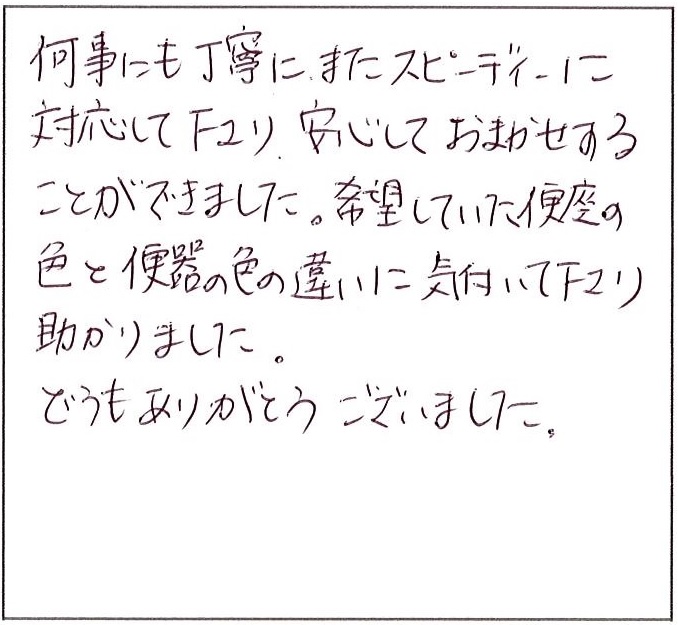 何事にも丁寧に、またスピーディーに
対応して下さり、安心しておまかせする
ことができました。希望していた便座の
色と便器の色の違いに気付いて下さり
助かりました。
どうもありがとうございました。